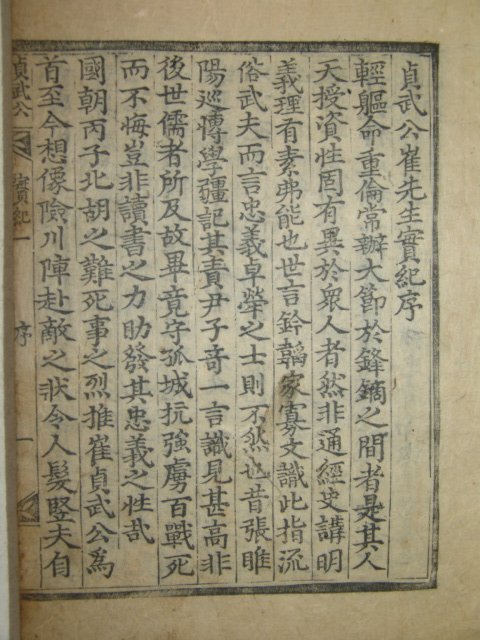 貞武公崔先生實紀序
輕軀命重倫常辦大節於鋒鏑之間者是其人
天授資性固有異於衆人者然非通經史講明
義理有素弗能也世言鈐韜家寡文識此指流
俗武夫而言忠義卓犖之士則不然也昔張睢
陽巡博學彊記其責尹子奇一言識見甚高非
後世儒者所及故畢竟守孤城抗強虜百戰死
而不悔豈非讀書之力助發其忠義之性哉
國朝丙子北胡之難死事之烈推崔貞武公爲
首至今想像險川陣赴敵之狀令人髮竪夫自
貞武公 實紀一 序 一